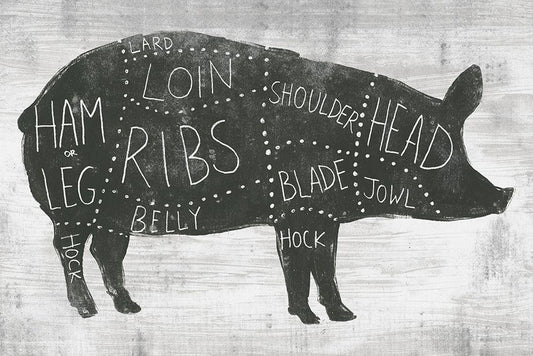 LARD
LOIN
SHOULDER
HEAD
HAM
OR
LEG
RIBS
BLADE
JOWL
BELLY
HOCK
HOCK